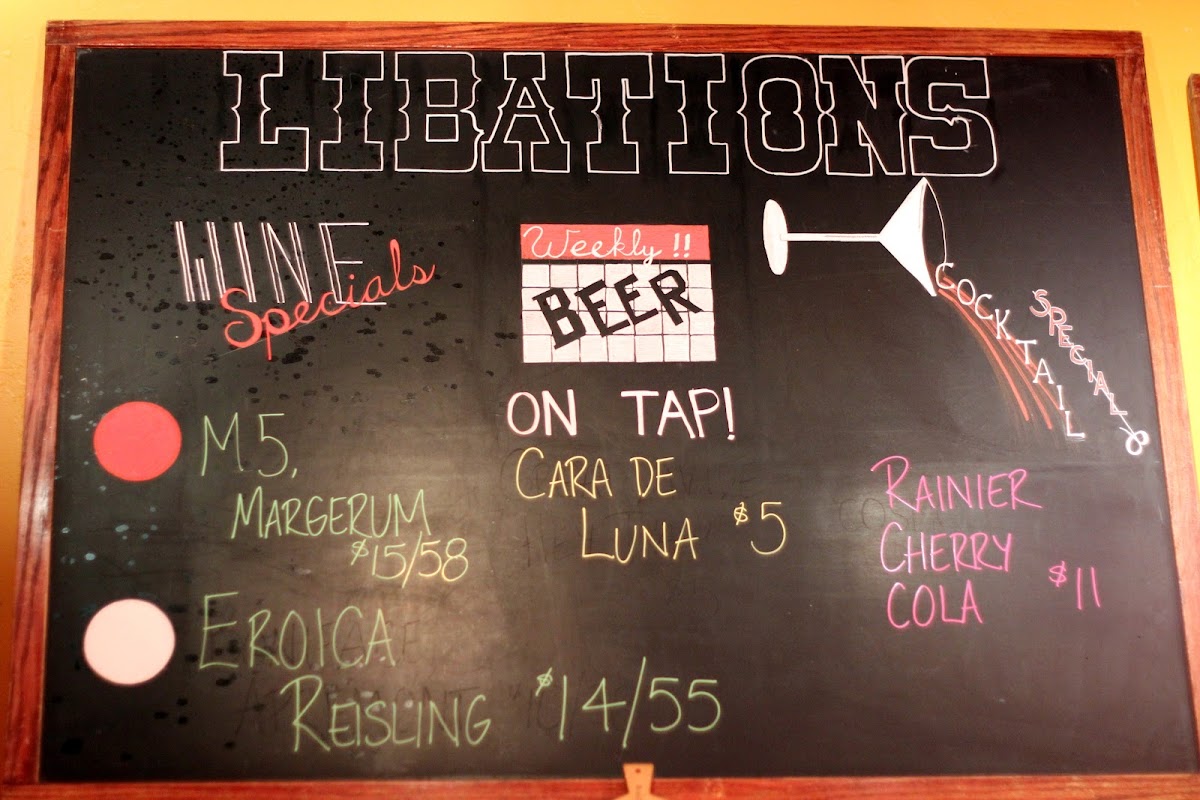 LIBATIONS
WINE
Specials
M5,
MARGERUM
$15/58
EROICA
REISLING $14/55
Weekly !!
BEER
ON TAP!
CARA DE
LUNA $5
COCKTAIL
SPECIAL
RAINIER
CHERRY
COLA $11